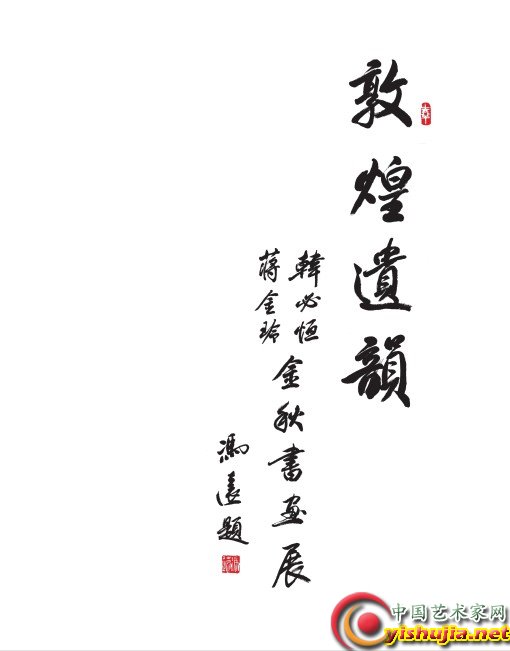 敦煌遺韻
韓必恒
蔣金玲
金秋書画展
馮遠題
中国艺术家网
yishujia.net